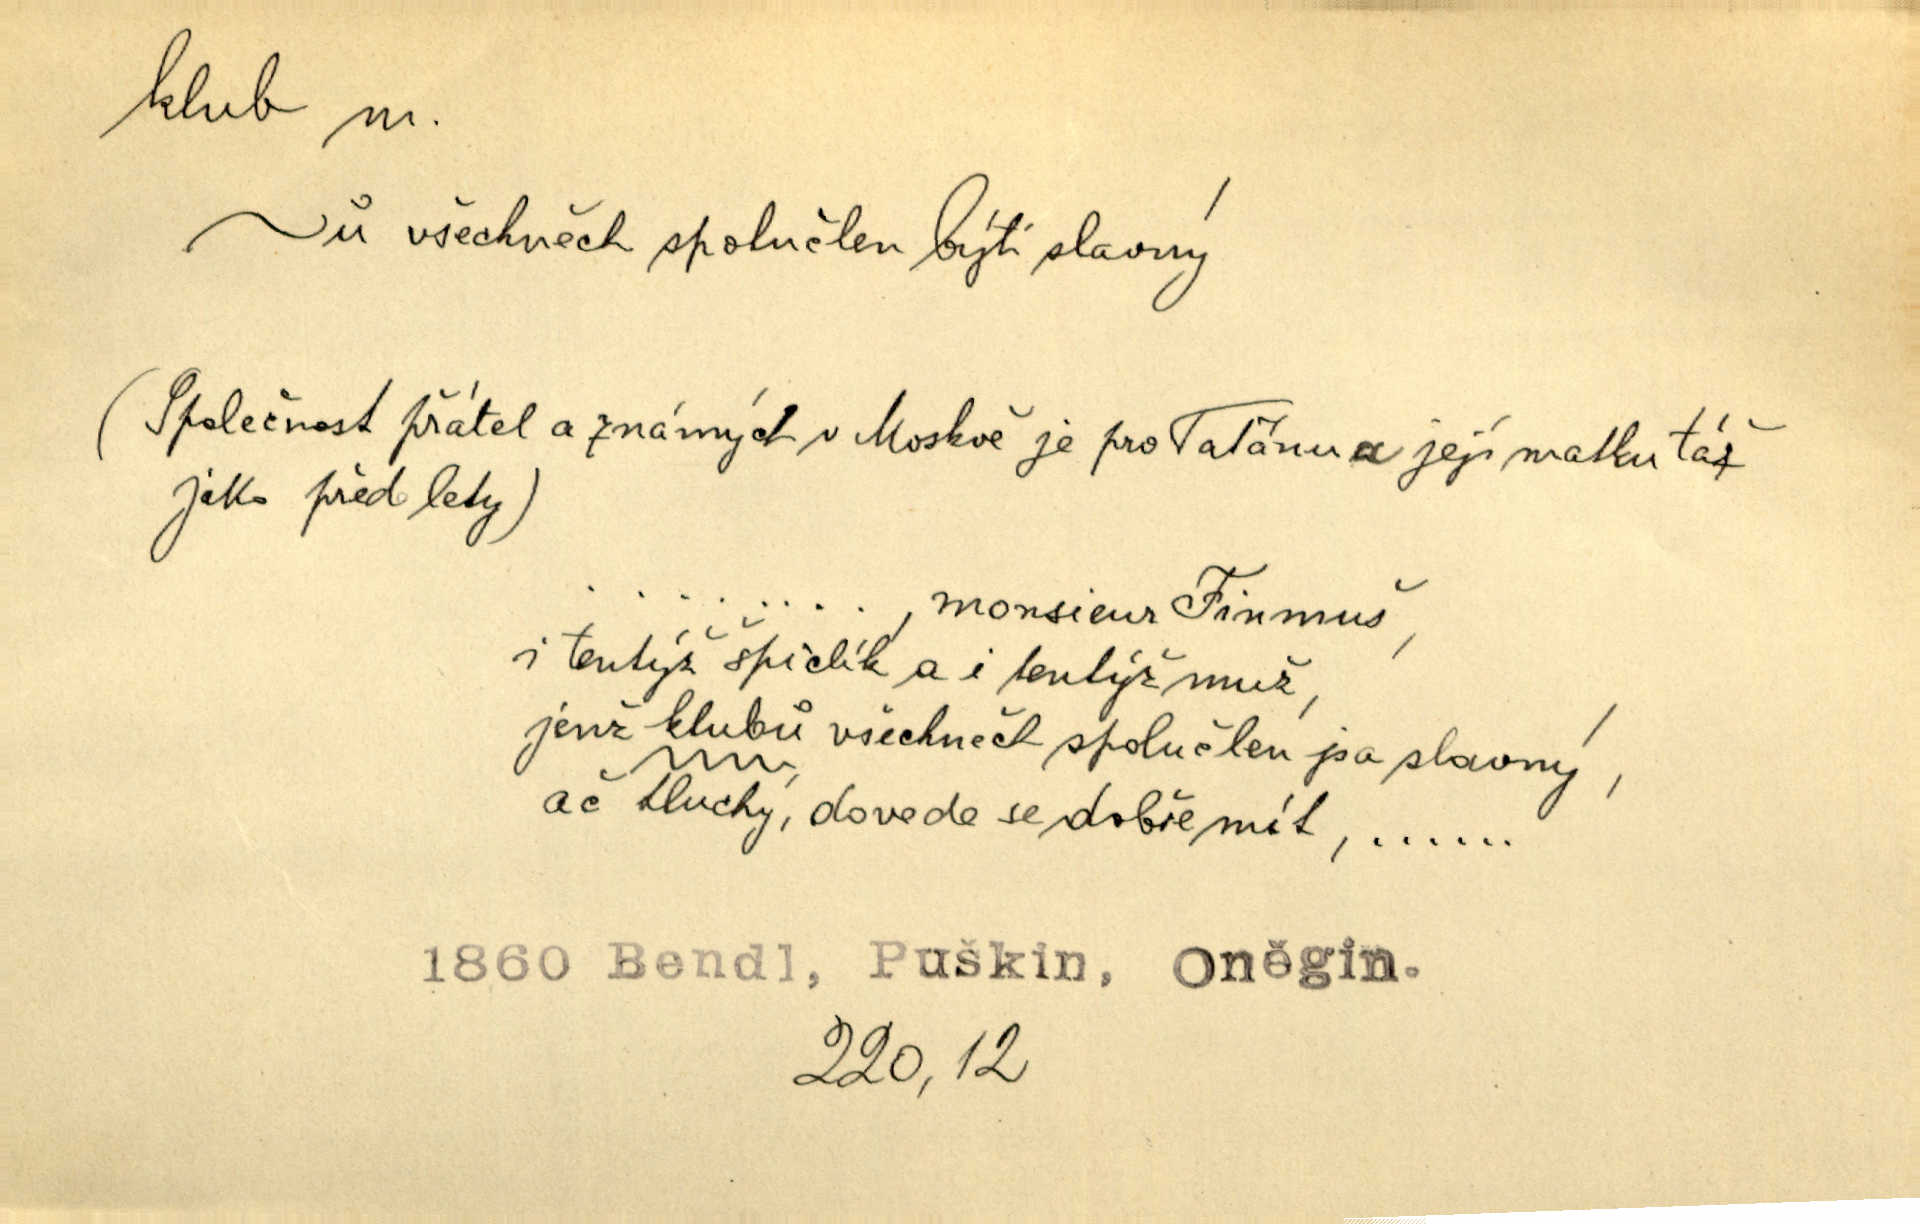 klub m.
~ů všechněch spolučlen býti slavný
(Společnost přátel a známých v Moskvě je pro Taťánu a její matku táž
jako před lety)
........, monsieur Finmuš,
i tentýž špiclík a i tentýž muž,
jenž klubů všechněch spolučlen jsa slavný,
ač hluchý, dovede se dobře mít, ......
1860 Bendl, Puškin, Oněgin.
220, 12